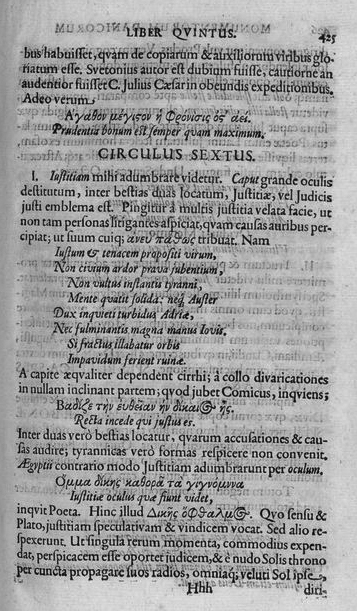 LIBER QVINTUS. 425
bus habuisset, qvam de copiarum & auxiliorum viribus glo-
riatum esse. Svetonius autor est dubium fuisse, cautiorne an
audentior fuisset C. Julius Cæsar in obeundis expeditionibus.
Adeo verum
Ἀγαθὸν μέγιστον ἡ Φρόνησις ὂς ἀεί.
Prudentia bonum est semper quam maximum.
CIRCULUS SEXTUS.
I. Iustitiam mihi adumbrare videtur. Caput grande oculis
destitutum, inter bestias duas locatum, Justitiæ, vel Judicis
justi emblema est. Pingitur à multis justitia velata facie, ut
non tam personas litigantes aspiciat, qvam causas auribus per-
cipiat; ut suum cuiq; ἄνευ πάθους tribuat. Nam
Iustum & tenacem propositi virum,
Non civium ardor prava jubentium,
Non vultus instantis tyranni,
Mente quatit solida: neq; Auster
Dux inquieti turbidus Adriæ,
Nec fulminantis magna manus Iovis,
Si fractus illabatur orbis
Impavidum ferient ruinæ.
A capite æqvaliter dependent cirrhi; à collo divaricationes
in nullam inclinant partem; qvod jubet Comicus, inqviens;
Βάδιζε τὴν εὐθεῖαν ἣν δίκαιος ᾖς.
Recta incede qui justus es.
Inter duas verò bestias locatur, qvarum accusationes & cau-
sas audire; tyrannicas verò formas respicere non convenit.
Ægyptii contrario modo Justitiam adumbrarunt per oculum.
Ομμα δίκης καθορᾷ τὰ γιγνόμενα
Iustitiæ oculus quæ fiunt videt,
inqvit Poeta. Hinc illud Δικῆς ὀφθαλμός. Qvo sensu &
Plato, justitiam speculativam & vindicem vocat. Sed alio re-
spexerunt. Ut singula rerum momenta, commodius expen-
dat, perspicacem esse oportet judicem, & è nudo Solis throno
per cuncta propagare suos radios, omniaq; veluti Sol ipse,
Hhh diri-